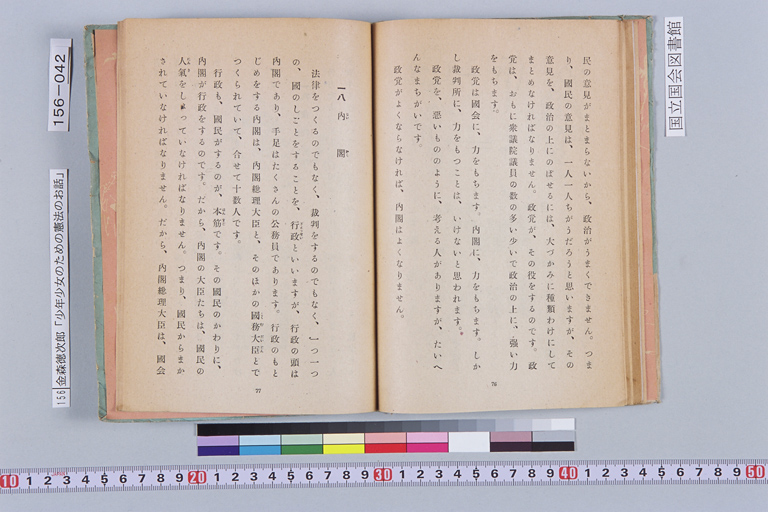 国立国会図書館
民の意見がまとまらないから、政治がうまくできません。つま
り、國民の意見は、一人一人ちがうだろうと思いますが、その
意見を、政治の上にのばせるには、大づかみに種類わけにして
まとめなければなりません。政党が、その役をするのです。政
党は、おもに衆議院議員の数の多い少いで政治の上に、强い力
をもちます。
政党は國会に、力をもちます。内閣に、力をもちます。しか
し裁判所に、力をもつことは、いけないと思われます。
政党を、悪いもののように、考える人がありますが、たいへ
んなまちがいです。
政党がよくならなければ、内閣はよくなりません。
76
一八 内閣
法律をつくるのでもなく、裁判をするのでもなく、一つ一つ
の、國のしごとをすることを、行政といいますが、行政の頭は
内閣であり、手足はたくさんの公務員であります。行政のもと
じめをする内閣は、内閣総理大臣と、そのほかの國務大臣とで
つくられていて、合せて十数人です。
行政も、國民がするのが、本筋です。その國民のかわりに、
内閣が行政をするのです。だから、内閣の大臣たちは、國民の
人氣をしょっていなければなりません。つまり、國民からまか
されていなければなりません。だから、内閣総理大臣は、國会
77
156-042
156 金森徳次郎「少年少女のための憲法のお話」
10 1 2 3 4 5 6 7 8 9 20 1 2 3 4 5 6 7 8 9 30 1 2 3 4 5 6 7 8 9 40 1 2 3 4 5 6 7 8 9 50